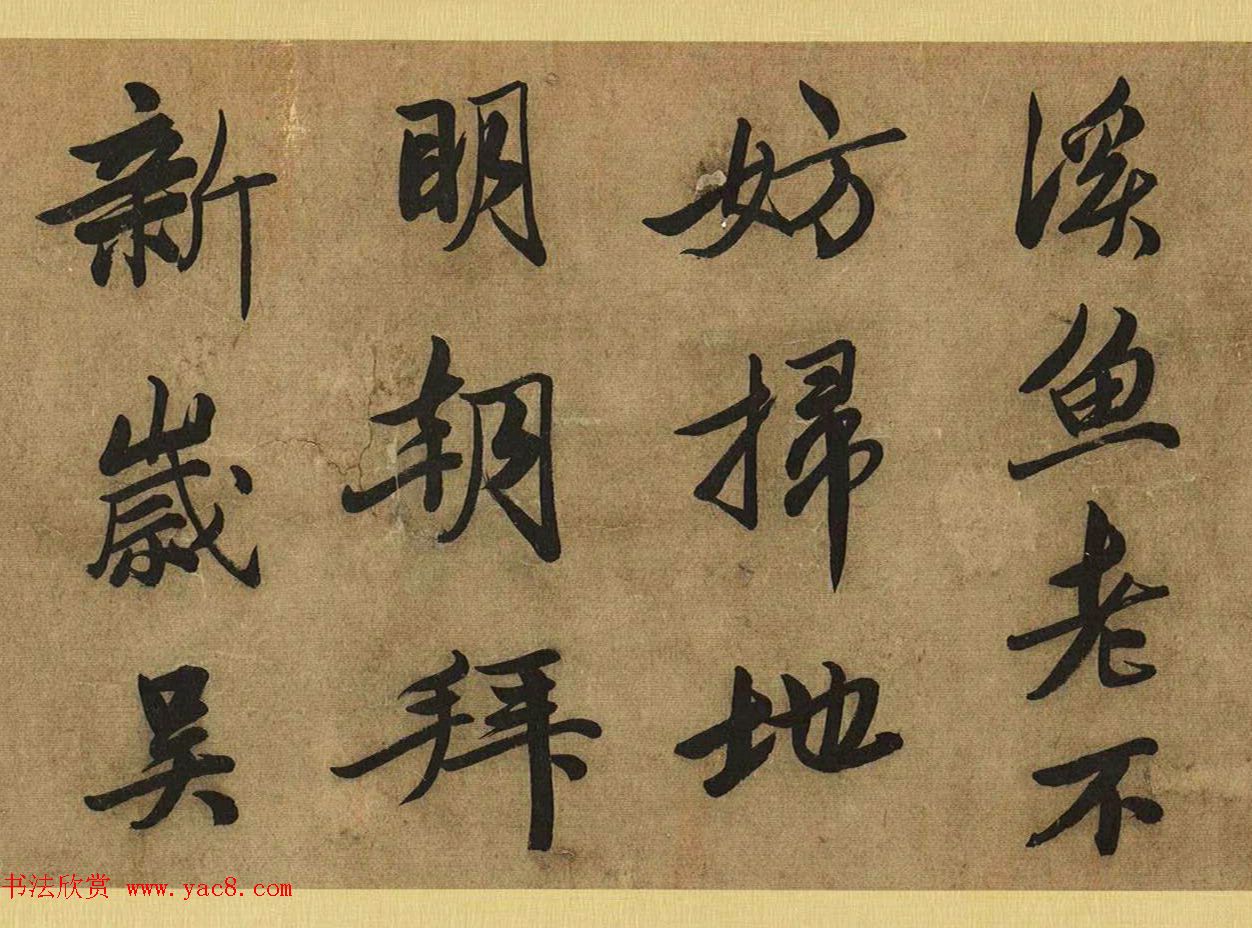 溪鱼老不
妨掃地
明朝拜
新歲吴
书法欣赏 www.yac8.com